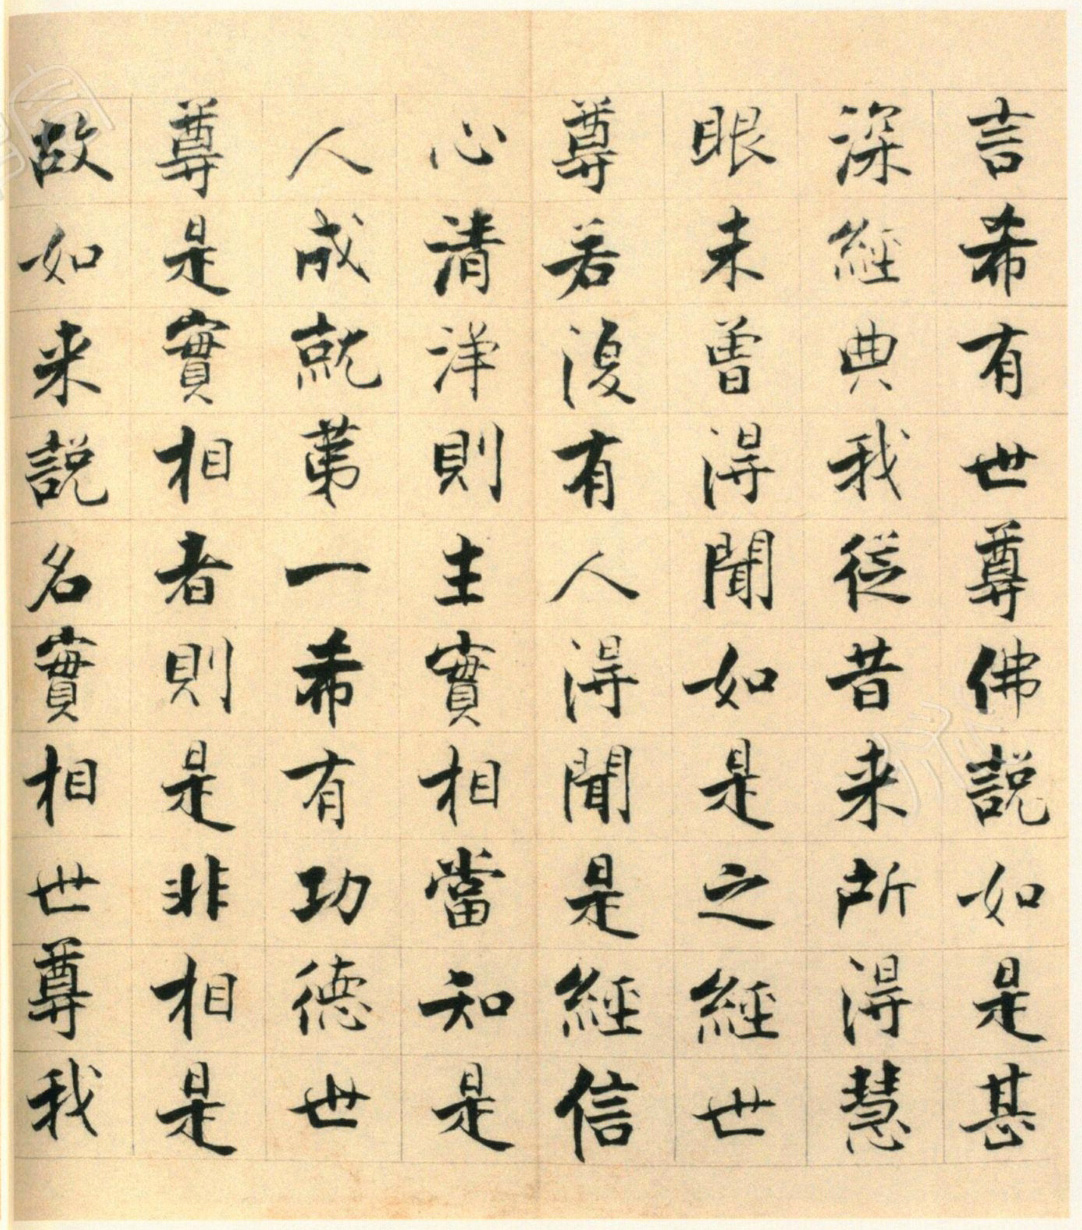 言希有世尊佛說如是甚
深經典我從昔来所得慧
眼未曾得聞如是之經世
尊若復有人得聞是經信
心清淨則生實相當知是
人成就第一希有功德世
尊是實相者則是非相是
故如来說名實相世尊我